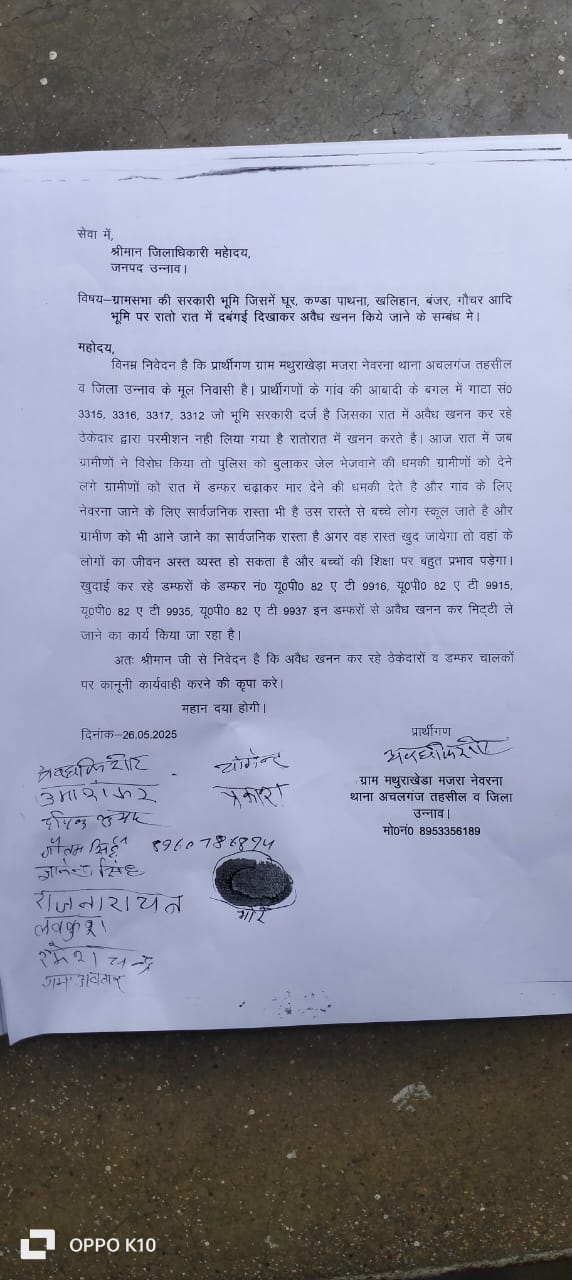 सेवा में,
श्रीमान जिलाधिकारी महेादय,
जनपद उन्नाव।
विषय–ग्रामसभा की सरकारी भूमि जिसमें घूर, कण्डा पाथना, खलिहान, बंजर, गौचर आदि
भूमि पर रातो रात में दबंगई दिखाकर अवैध खनन किये जाने के सम्बंध मे।
महोदय,
विनम्र निवेदन है कि प्रार्थीगण ग्राम मथुराखेड़ा मजरा नेवरना थाना अचलगंज तहसील
व जिला उन्नाव के मूल निवासी है। प्रार्थीगणों के गांव की आबादी के बगल में गाटा सं0
3315, 3316, 3317, 3312 जो भूमि सरकारी दर्ज है जिसका रात में अवैध खनन कर रहे
ठेकेदार द्वारा परमीशन नही लिया गया है रातोरात में खनन करते है। आज रात में जब
ग्रामीणों ने विरोध किया तो पुलिस को बुलाकर जेल भेजवाने की धमकी ग्रामीणों को देने
लगे ग्रामीणों को रात में डम्फर चढ़ाकर मार देने की धमकी देते है और गांव के लिए
नेवरना जाने के लिए सार्वजनिक रास्ता भी है उस रास्ते से बच्चे लोग स्कूल जाते है और
ग्रामीण को भी आने जाने का सार्वजनिक रास्ता है अगर वह रास्त खुद जायेगा तो वहां के
लोगों का जीवन अस्त व्यस्त हो सकता है और बच्चों की शिक्षा पर बहुत प्रभाव पड़ेगा।
खुदाई कर रहे डम्फरों के डम्फर नं0 यू0पी0 82 ए टी 9916, यू0पी0 82 ए टी 9915,
यू0पी0 82 ए टी 9935, यू0पी0 82 ए टी 9937 इन डम्फरों से अवैध खनन कर मिट्टी ले
जाने का कार्य किया जा रहा है।
अतः श्रीमान जी से निवेदन है कि अवैध खनन कर रहे ठेकेदारों व डम्फर चालकों
पर कानूनी कार्यवाही करने की कृपा करे।
महान दया होगी।
दिनांक–26.05.2025
प्रार्थीगण
अवधकिशोर
ग्राम मथुराखेडा मजरा नेवरना
थाना अचलगंज तहसील व जिला
उन्नाव।
मो0नं0 8953356189
अवधकिशोर
योगेन्द्र
उमाशंकर
प्रकाश
गौतम सिंह 8960786894
ज्ञानेन्द्र सिंह
राजनारायन
लवकुश
रमेश चन्द्र
राम अवतार
OPPO K10